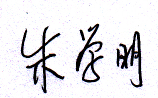 朱学明